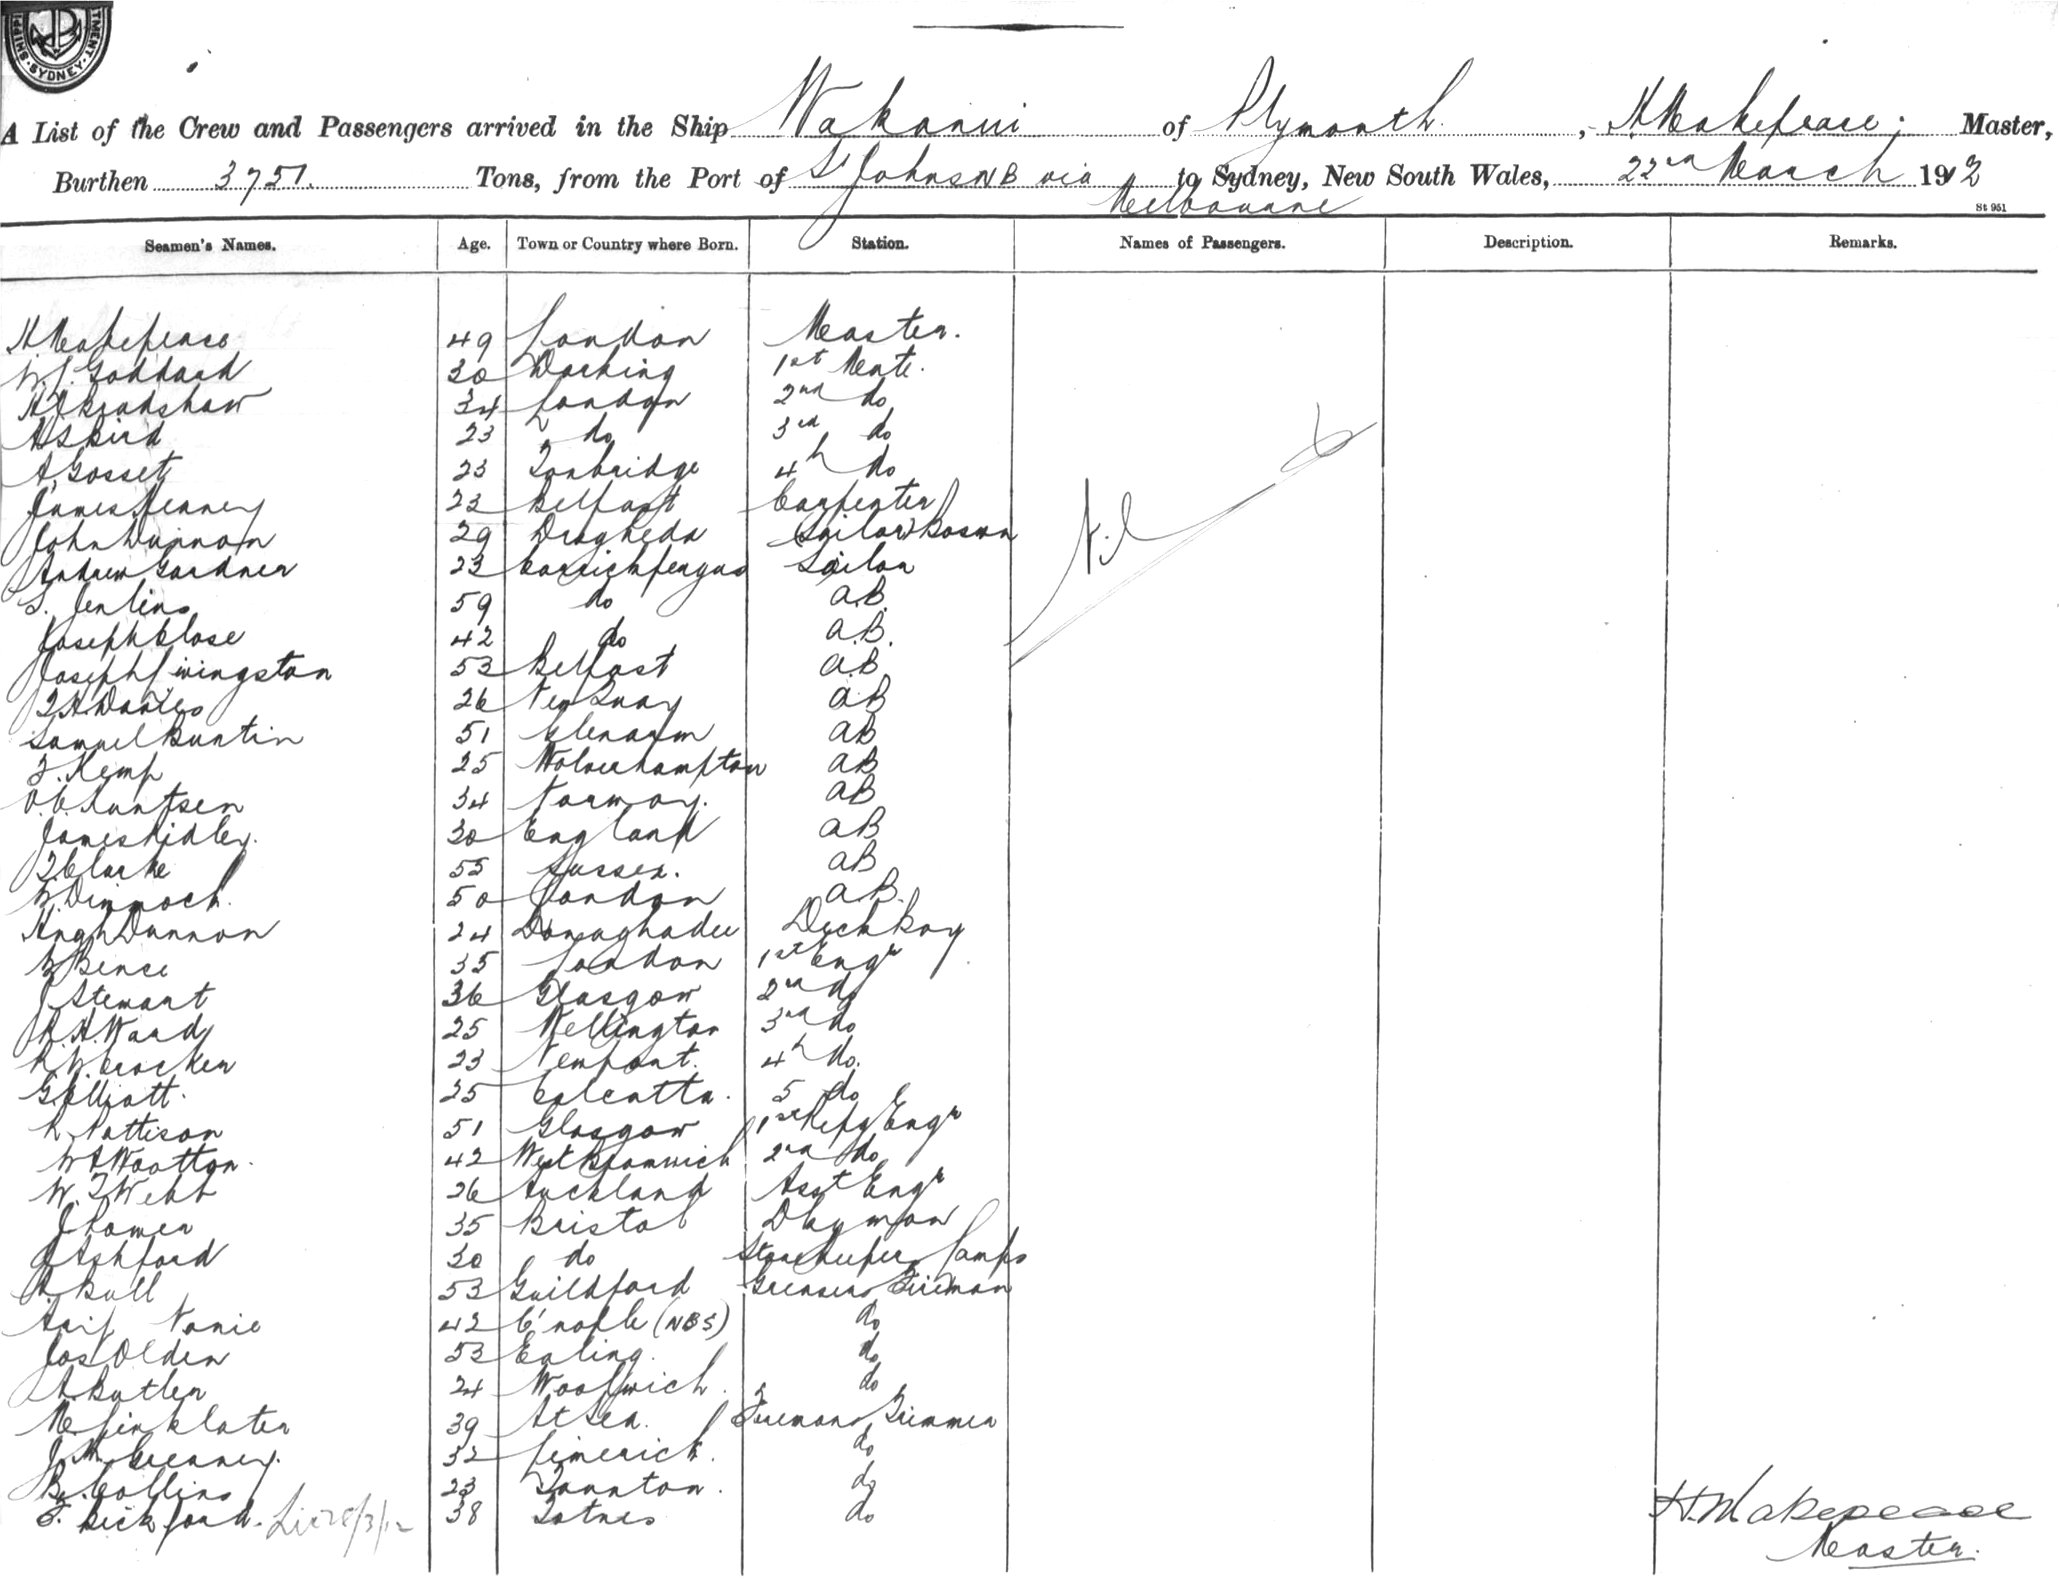 SHIPPI TMENT · SYDNEY ·
A List of the Crew and Passengers arrived in the Ship Wakanui of Plymouth, H Makepeace; Master,
Burthen 3751. Tons, from the Port of St Johns NB via Melbourne to Sydney, New South Wales, 22nd March 1912
St 951
Seamen's Names. Age. Town or Country where Born. Station. Names of Passengers. Description. Remarks.
H Makepeace 49 London Master.
W.J. Goddard 30 Dorking 1st Mate.
H J Bradshaw 34 London 2nd do
H S Bird 23 do 3rd do
A Gosset 23 Tonbridge 4th do
James Heaney 23 Belfast Carpenter
John Dunnon 29 Drogheda Sailor & Bosun
Andrew Gardner 23 Carrickfergus Sailor
Nil
S. Jenkins 59 do A.B.
Joseph Close 42 do A.B.
Joseph Livingston 53 Belfast A.B.
T H Davies 26 New Quay AB
Samuel Buntin 51 Glenarm AB
F. Kemp 25 Wolverhampton AB
O.C. Knutsen 34 Norway. AB
James Ridley. 30 England AB
T Clarke 55 Sussex. AB
W Dimmock. 50 London A.B.
Hugh Dunnon 24 Donaghadee Deck Boy
W Bence 35 London 1st Engr
J Stewart 36 Glasgow 2nd do
R. H. Ward 25 Wellington 3rd do
R. W. Crocker 23 Newport. 4th do.
G. Elliott. 25 Calcutta. 5 do
R Pattison 51 Glasgow 1st Refg Engr
W A Wootton. 42 West Bromwich 2nd do
W. T Webb 26 Auckland Asst Engr
J Romer 35 Bristol Dkyman
A Ashford 30 do Storekeeper Lamps
A. Bull 53 Guildford Greaser & Fireman
Arif Namie 42 C'nople (NBS) do
Jas Olden 53 Ealing. do
A. Butler 24 Woolwich. do
M. Linklater 39 At Sea. Fireman & Trimmer
J. McGreaney. 32 Limerick. do
B. Collins 23 Taunton. do
F. Bickford. 38 Totnes do
H. Makepeace
Master.